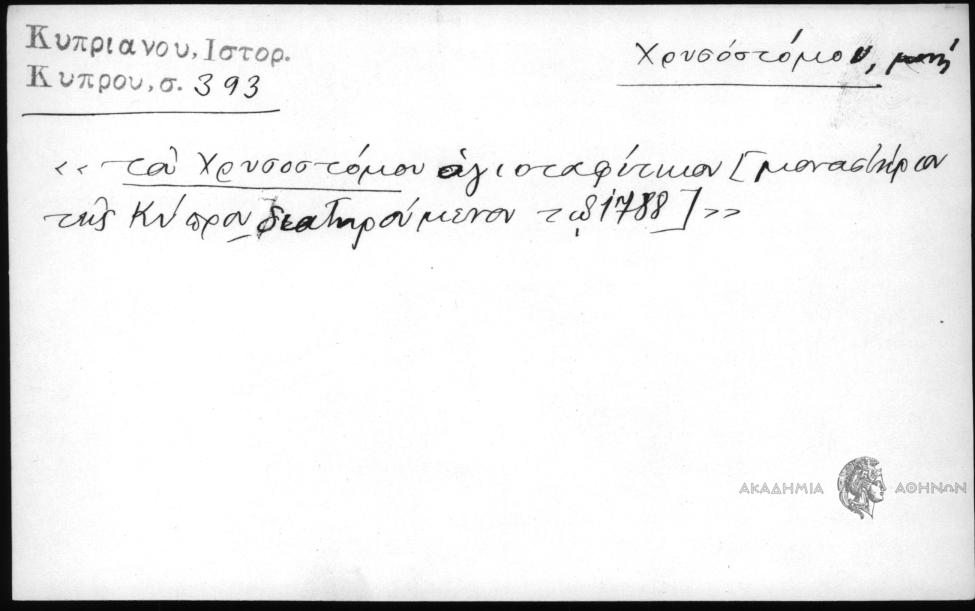 Κυπριανου, Ιστορ.
Κυπρου, σ. 393
Χρυσόστόμου, μονή
«τοῦ Χρυσοστόμου ἁγιοταφίτικον [μοναστήριον
τῆς Κύπρου διατηρούμενον τῷ 1788]»
ΑΚΑΔΗΜΙΑ ΑΘΗΝΩΝ